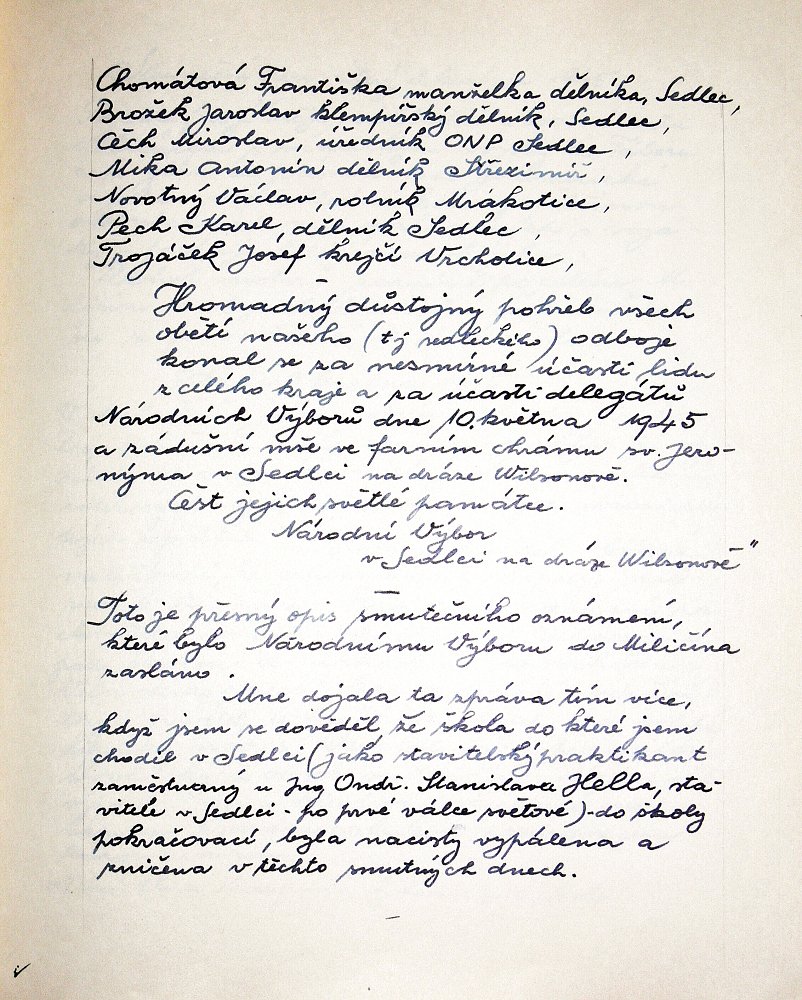 Chomátová Františka manželka dělníka, Sedlec,
Brožek Jaroslav klempířský dělník, Sedlec,
Čech Miroslav, úředník ONP Sedlec,
Mika Antonín dělník Střezimíř,
Novotný Václav, rolník Mrákotice,
Pech Karel, dělník Sedlec,
Trojáček Josef krejčí Vrchotice,
Hromadný důstojný pohřeb všech
obětí našeho (tj sedleckého) odboje
konal se za nesmírné účasti lidu
z celého kraje a za účasti delegátů
Národních Výborů dne 10. května 1945
a zádušní mše ve farním chrámu sv. Jero-
nýma v Sedlci na dráze Wilsonově.
Čest jejich světlé památce.
Národní Výbor
v Sedlci na dráze Wilsonově"
Toto je přesný opis smutečního oznámení,
které bylo Národnímu Výboru do Miličína
zasláno.
Mne dojala ta zpráva tím více,
když jsem se dověděl, že škola do které jsem
chodil v Sedlci (jako stavitelský praktikant
zaměstnaný u Ing Ondř. Stanislava Hella, sta-
vitele v Sedlci - po prvé válce světové) - do školy
pokračovací, byla nacisty vypálena a
zničena v těchto smutných dnech.